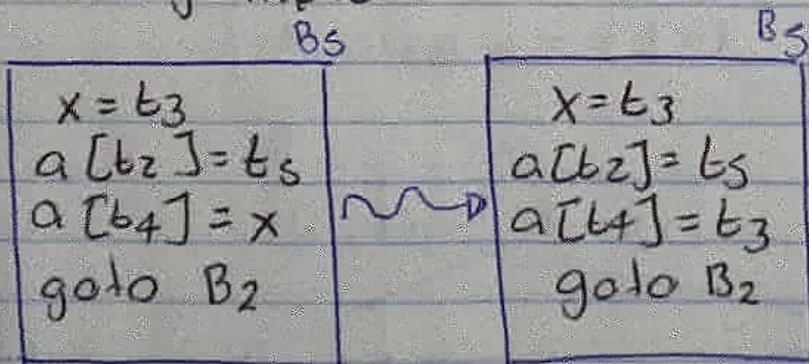 B5
x = t3
a [t2] = t5
a [t4] = x
goto B2
B5
x = t3
a[t2] = t5
a[t4] = t3
goto B2